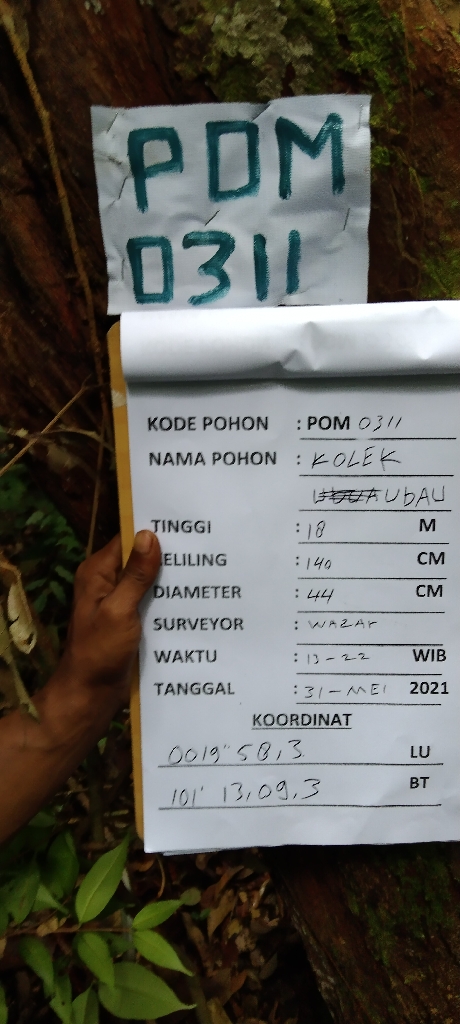 POM
0311
KODE POHON : POM 0311
NAMA POHON : KOLEK
UBAU
TINGGI : 18 M
KELILING : 140 CM
DIAMETER : 44 CM
SURVEYOR : WAZAR
WAKTU : 13-22 WIB
TANGGAL : 31-MEI 2021
KOORDINAT
0019" 58,3 LU
101' 13,09,3 BT